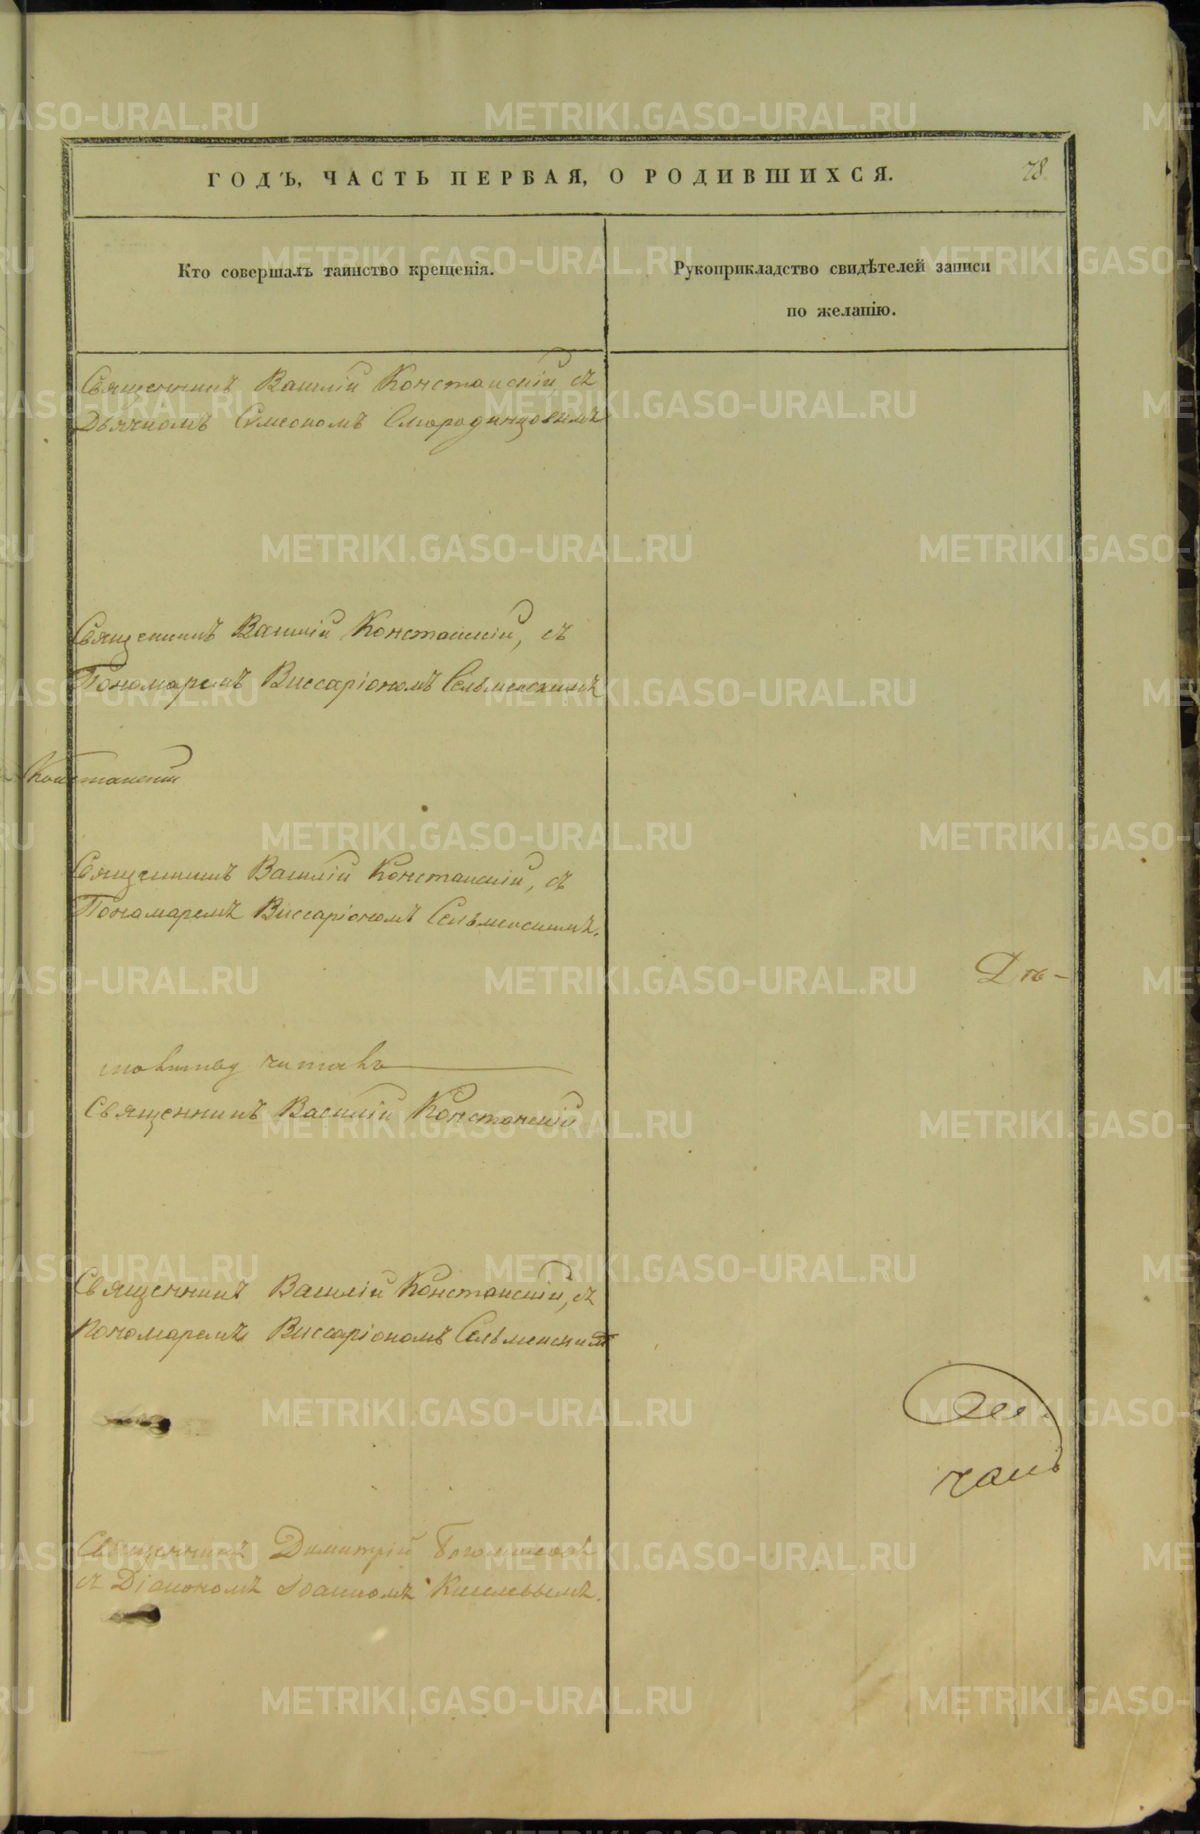 ГОДЪ, ЧАСТЬ ПЕРВАЯ, О РОДИВШИХСЯ.
78.
Кто совершалъ таинство крещенія.
Рукоприкладство свидѣтелей записи
по желанію.
Священникъ Василій Констанскій, съ
Дьячкомъ Сѵмеономъ Смородинцовымъ
Священникъ Василій Констанскій, съ
Пономаремъ Виссаріономъ Сельменскимъ
Констанскій
Священникъ Василій Констанскій, съ
Пономаремъ Виссаріономъ Сельменскимъ.
Дь-
молитву читавъ
Священникъ Василій Констанскій
Священникъ Василій Констанскій, съ
Пономаремъ Виссаріономъ Сельменскимъ
Священникъ Димитрій
съ Діакономъ Іоанномъ Киселевымъ.
METRIKI.GASO-URAL.RU